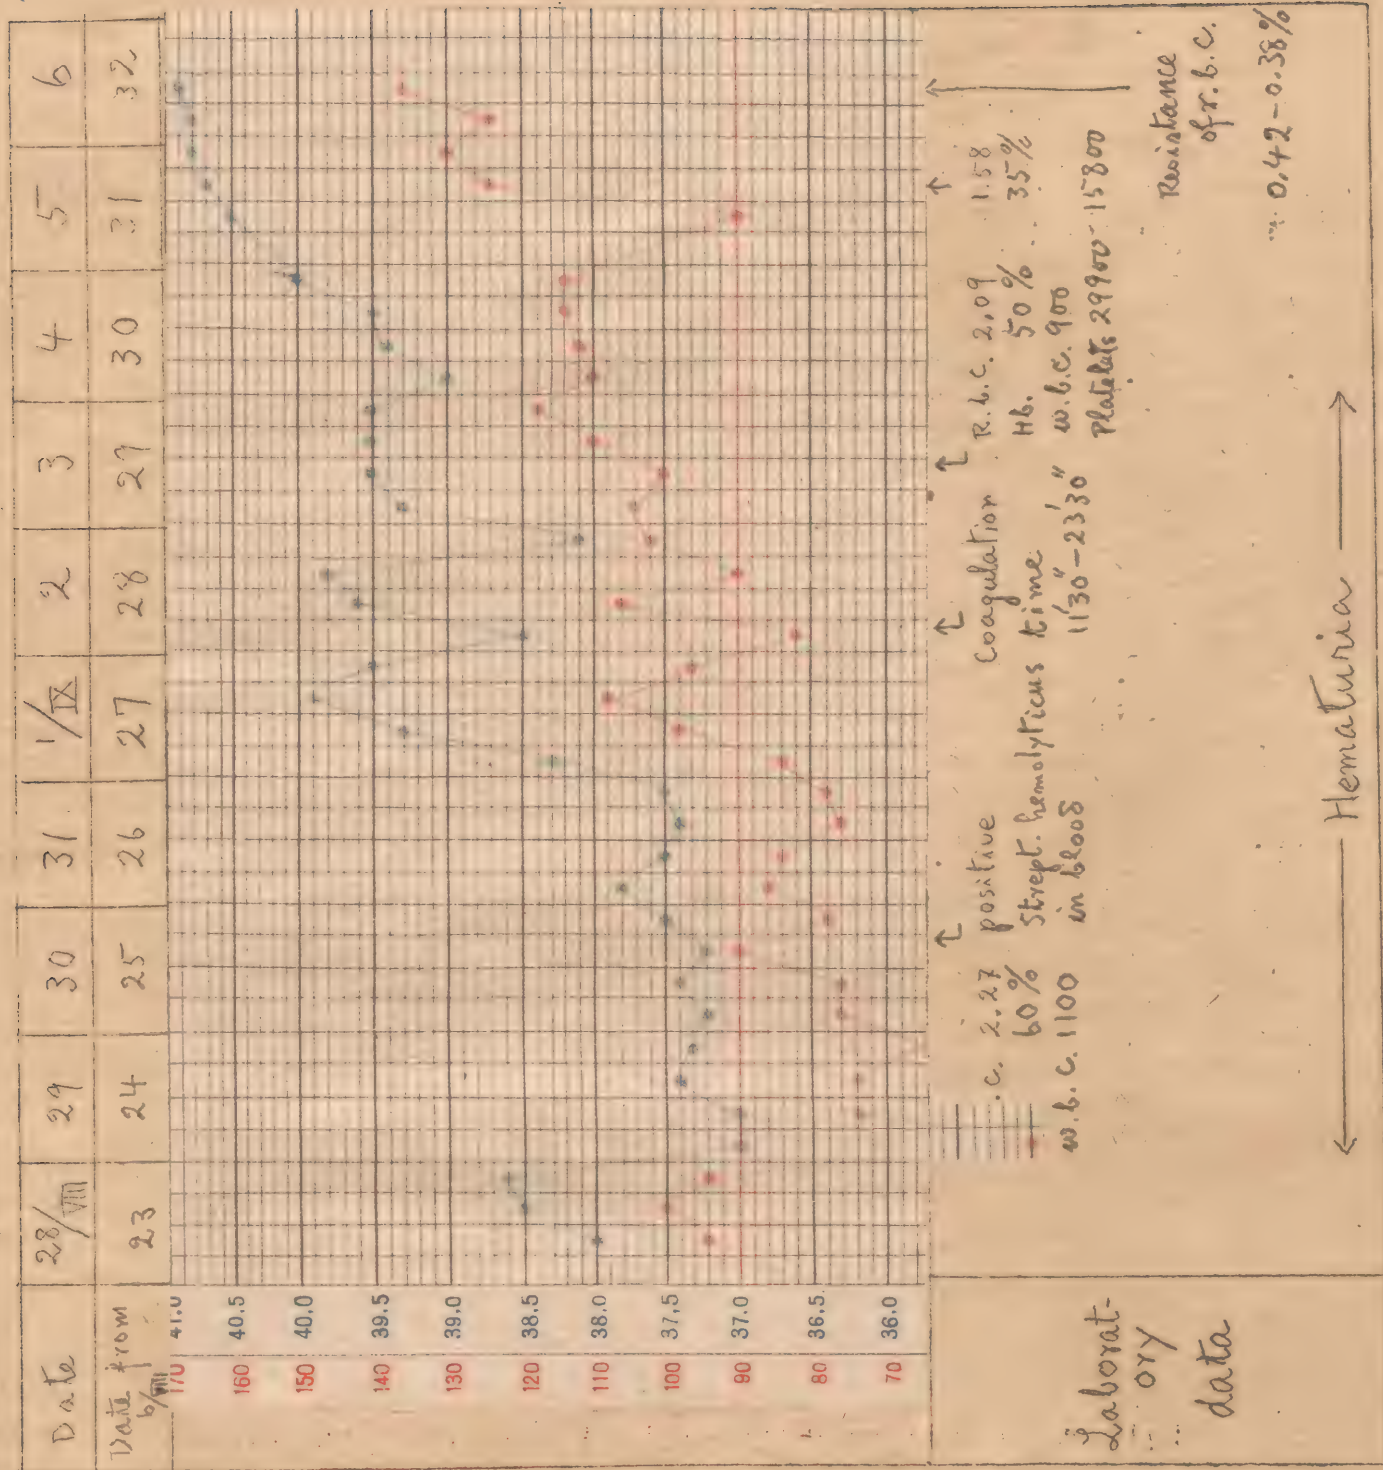 Date 28/VIII 29 30 31 1/IX 2 3 4 5 6
Date from 6/VIII 23 24 25 26 27 28 29 30 31 32
170 41.0
160 40.5
150 40.0
140 39.5
130 39.0
120 38.5
110 38.0
100 37.5
90 37.0
80 36.5
70 36.0
Laborat-
ory
data
.c. 2.27
60%
w.b.c. 1100
positive
Strept. hemolyticus
in blood
Coagulation
time
11'30"-23'30"
R.b.c. 2,09 1.58
Hb. 50% .. 35%
w.b.c. 900
Platelets 29900-15800
Resistance
of r.b.c.
0,42-0.38%
Hematuria